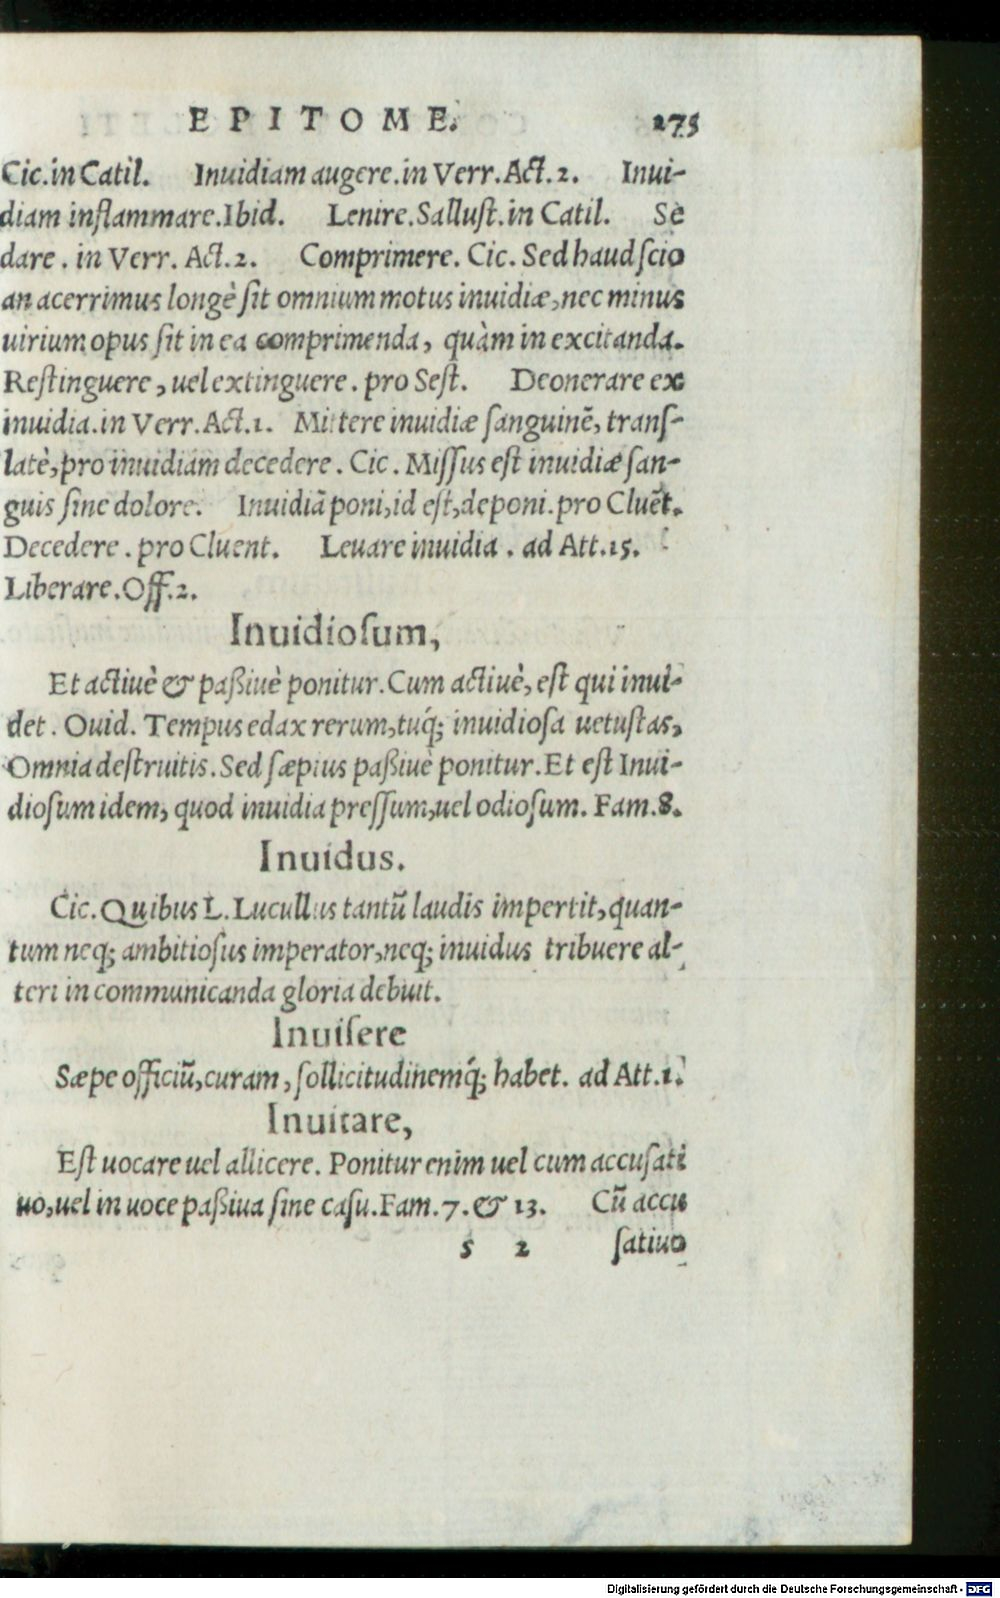 EPITOME. 275
Cic.in Catil. Inuidiam augere.in Verr.Act.2. Inui-
diam inflammare.Ibid. Lenire.Sallust.in Catil. Se
dare . in Verr. Act.2. Comprimere. Cic. Sed haud scio
an acerrimus longè sit omnium motus inuidiæ,nec minus
uirium opus sit in ea comprimenda, quàm in excitanda.
Restinguere, uel extinguere. pro Sest. Deonerare ex
inuidia.in Verr.Act.1. Mittere inuidiæ sanguinē, trans-
latè,pro inuidiam decedere. Cic. Missus est inuidiæ san-
guis sine dolore. Inuidiā poni,id est,deponi.pro Cluēt.
Decedere. pro Cluent. Leuare inuidia . ad Att.15.
Liberare.Off.2.
Inuidiosum,
Et actiuè & paßiuè ponitur.Cum actiuè,est qui inui-
det. Ouid. Tempus edax rerum,tuq́; inuidiosa uetustas,
Omnia destruitis.Sed sæpius paßiuè ponitur.Et est Inui-
diosum idem, quod inuidia pressum,uel odiosum. Fam.8.
Inuidus.
Cic. Quibus L. Lucullus tantū laudis impertit,quan-
tum neq; ambitiosus imperator,neq; inuidus tribuere al-
teri in communicanda gloria debuit.
Inuisere
Sæpe officiū,curam, sollicitudinemq́; habet. ad Att.1.
Inuitare,
Est uocare uel allicere. Ponitur enim uel cum accusati
uo,uel in uoce paßiua sine casu.Fam.7.& 13. Cū accu
s 2 satiuo
Digitalisierung gefördert durch die Deutsche Forschungsgemeinschaft - DFG